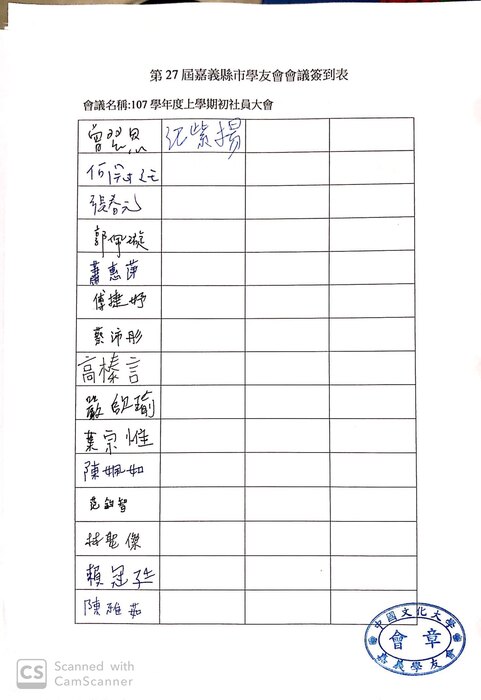 第 27 屆嘉義縣市學友會會議簽到表
會議名稱:107 學年度上學期初社員大會
曾翌恩 紀紫揚
張春元
郭佩璇
蕭惠萍
傅捷妤
蔡沛彤
高榛言
嚴
葉宗惟
陳姵如
范鈺智
林聖傑
賴冠
陳雅茹
中國文化大學
會章
嘉義學友會
CS Scanned with
CamScanner